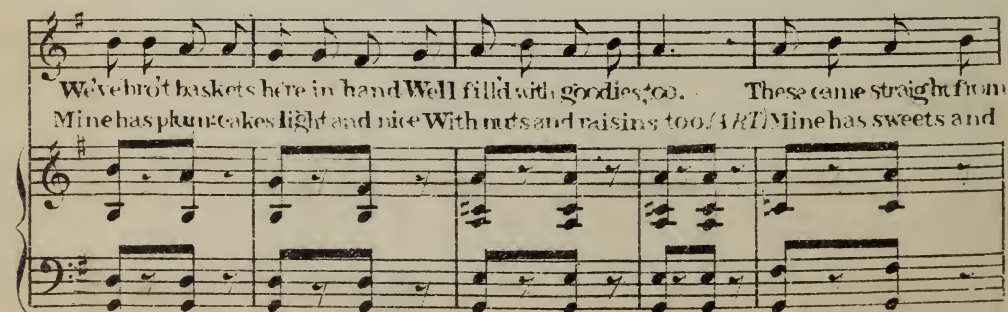 We've bro't baskets here in hand Well fill'd with goodies, too. These came straight from
Mine has plum-cakes light and nice With nuts and raisins too. (ART) Mine has sweets and